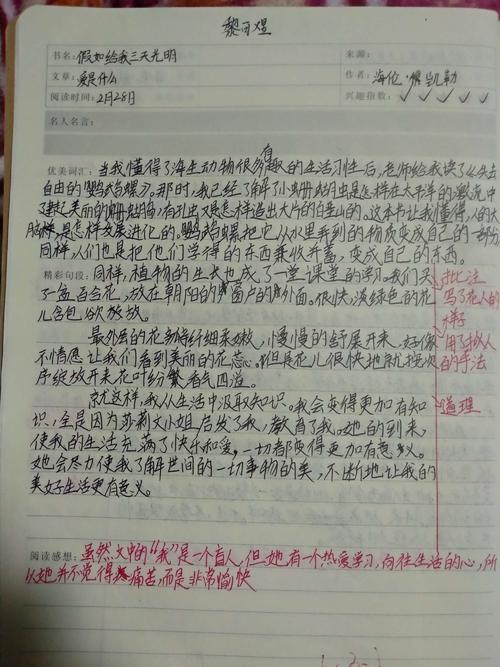 黎可煜
书名：假如给我三天光明
来源：
文章：爱是什么
作者：海伦·凯勒
阅读时间：2月28日
兴趣指数：✓ ✓ ✓ ✓ ✓
名人名言：
优美词汇：当我懂得了海生动物很多有趣的生活习性后，老师给我读了《失去
自由的鹦鹉螺》。那时，我已经了解了小珊瑚虫是怎样在太平洋的激流中
建起美丽的珊瑚岛，有孔虫又是怎样造出大片的白垩山的。这本书让我懂得，人的大
脑样是怎样发展进化的。鹦鹉螺把它从水里看到的物质变成自己的一部分
同样，人们也是把他们学得的东西兼收并蓄，变成自己的东西。
精彩句段：同样，植物的生长也成了一堂课堂的学习。我们买
了一盆百合花，放在朝阳的窗户的外面。很快，淡绿色的花
儿含苞欲放。
最外层的花瓣纤细柔嫩，慢慢的舒展开来，好像
不情愿让我们看到美丽的花蕊。但是花儿很快地就按次
序绽放开来花叶纷繁香气四溢。
就这样，我从生活中汲取知识。我会变得更加有知
识，全是因为莎莉文小姐启发了我，教育了我。她的到来，
使我的生活充满了快乐和爱，一切都变得更加有意义。
她会尽力使我了解世间的一切事物的美，不断地让我的
美好生活更有意义。
批注
写了花人的
样子
用了拟人
的手法
道理
阅读感想：虽然文中的“我”是一个盲人，但她有一个热爱学习，向往生活的心，所
以她并不觉得痛苦，而是非常愉快